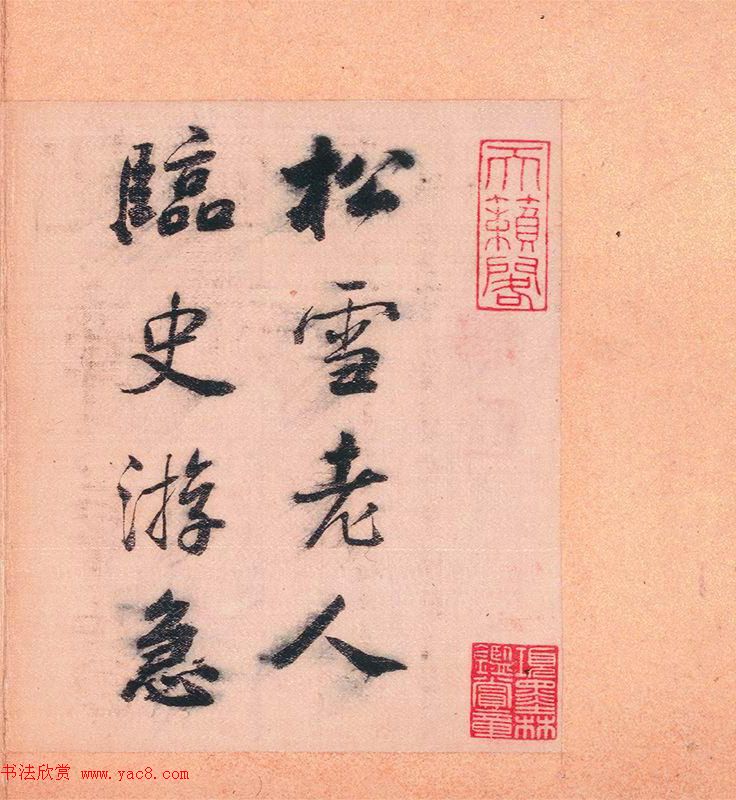 天籟閣
項墨林鑑賞章
松雪老人
臨史游急
书法欣赏 www.yac8.com